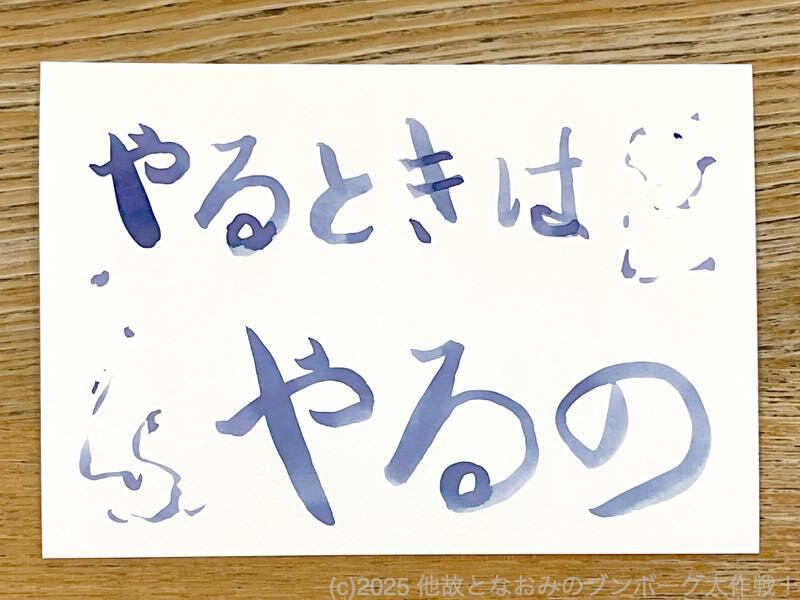 やるときは
やるの
(c)2025 他故となおみのブンボーグ大作戦！